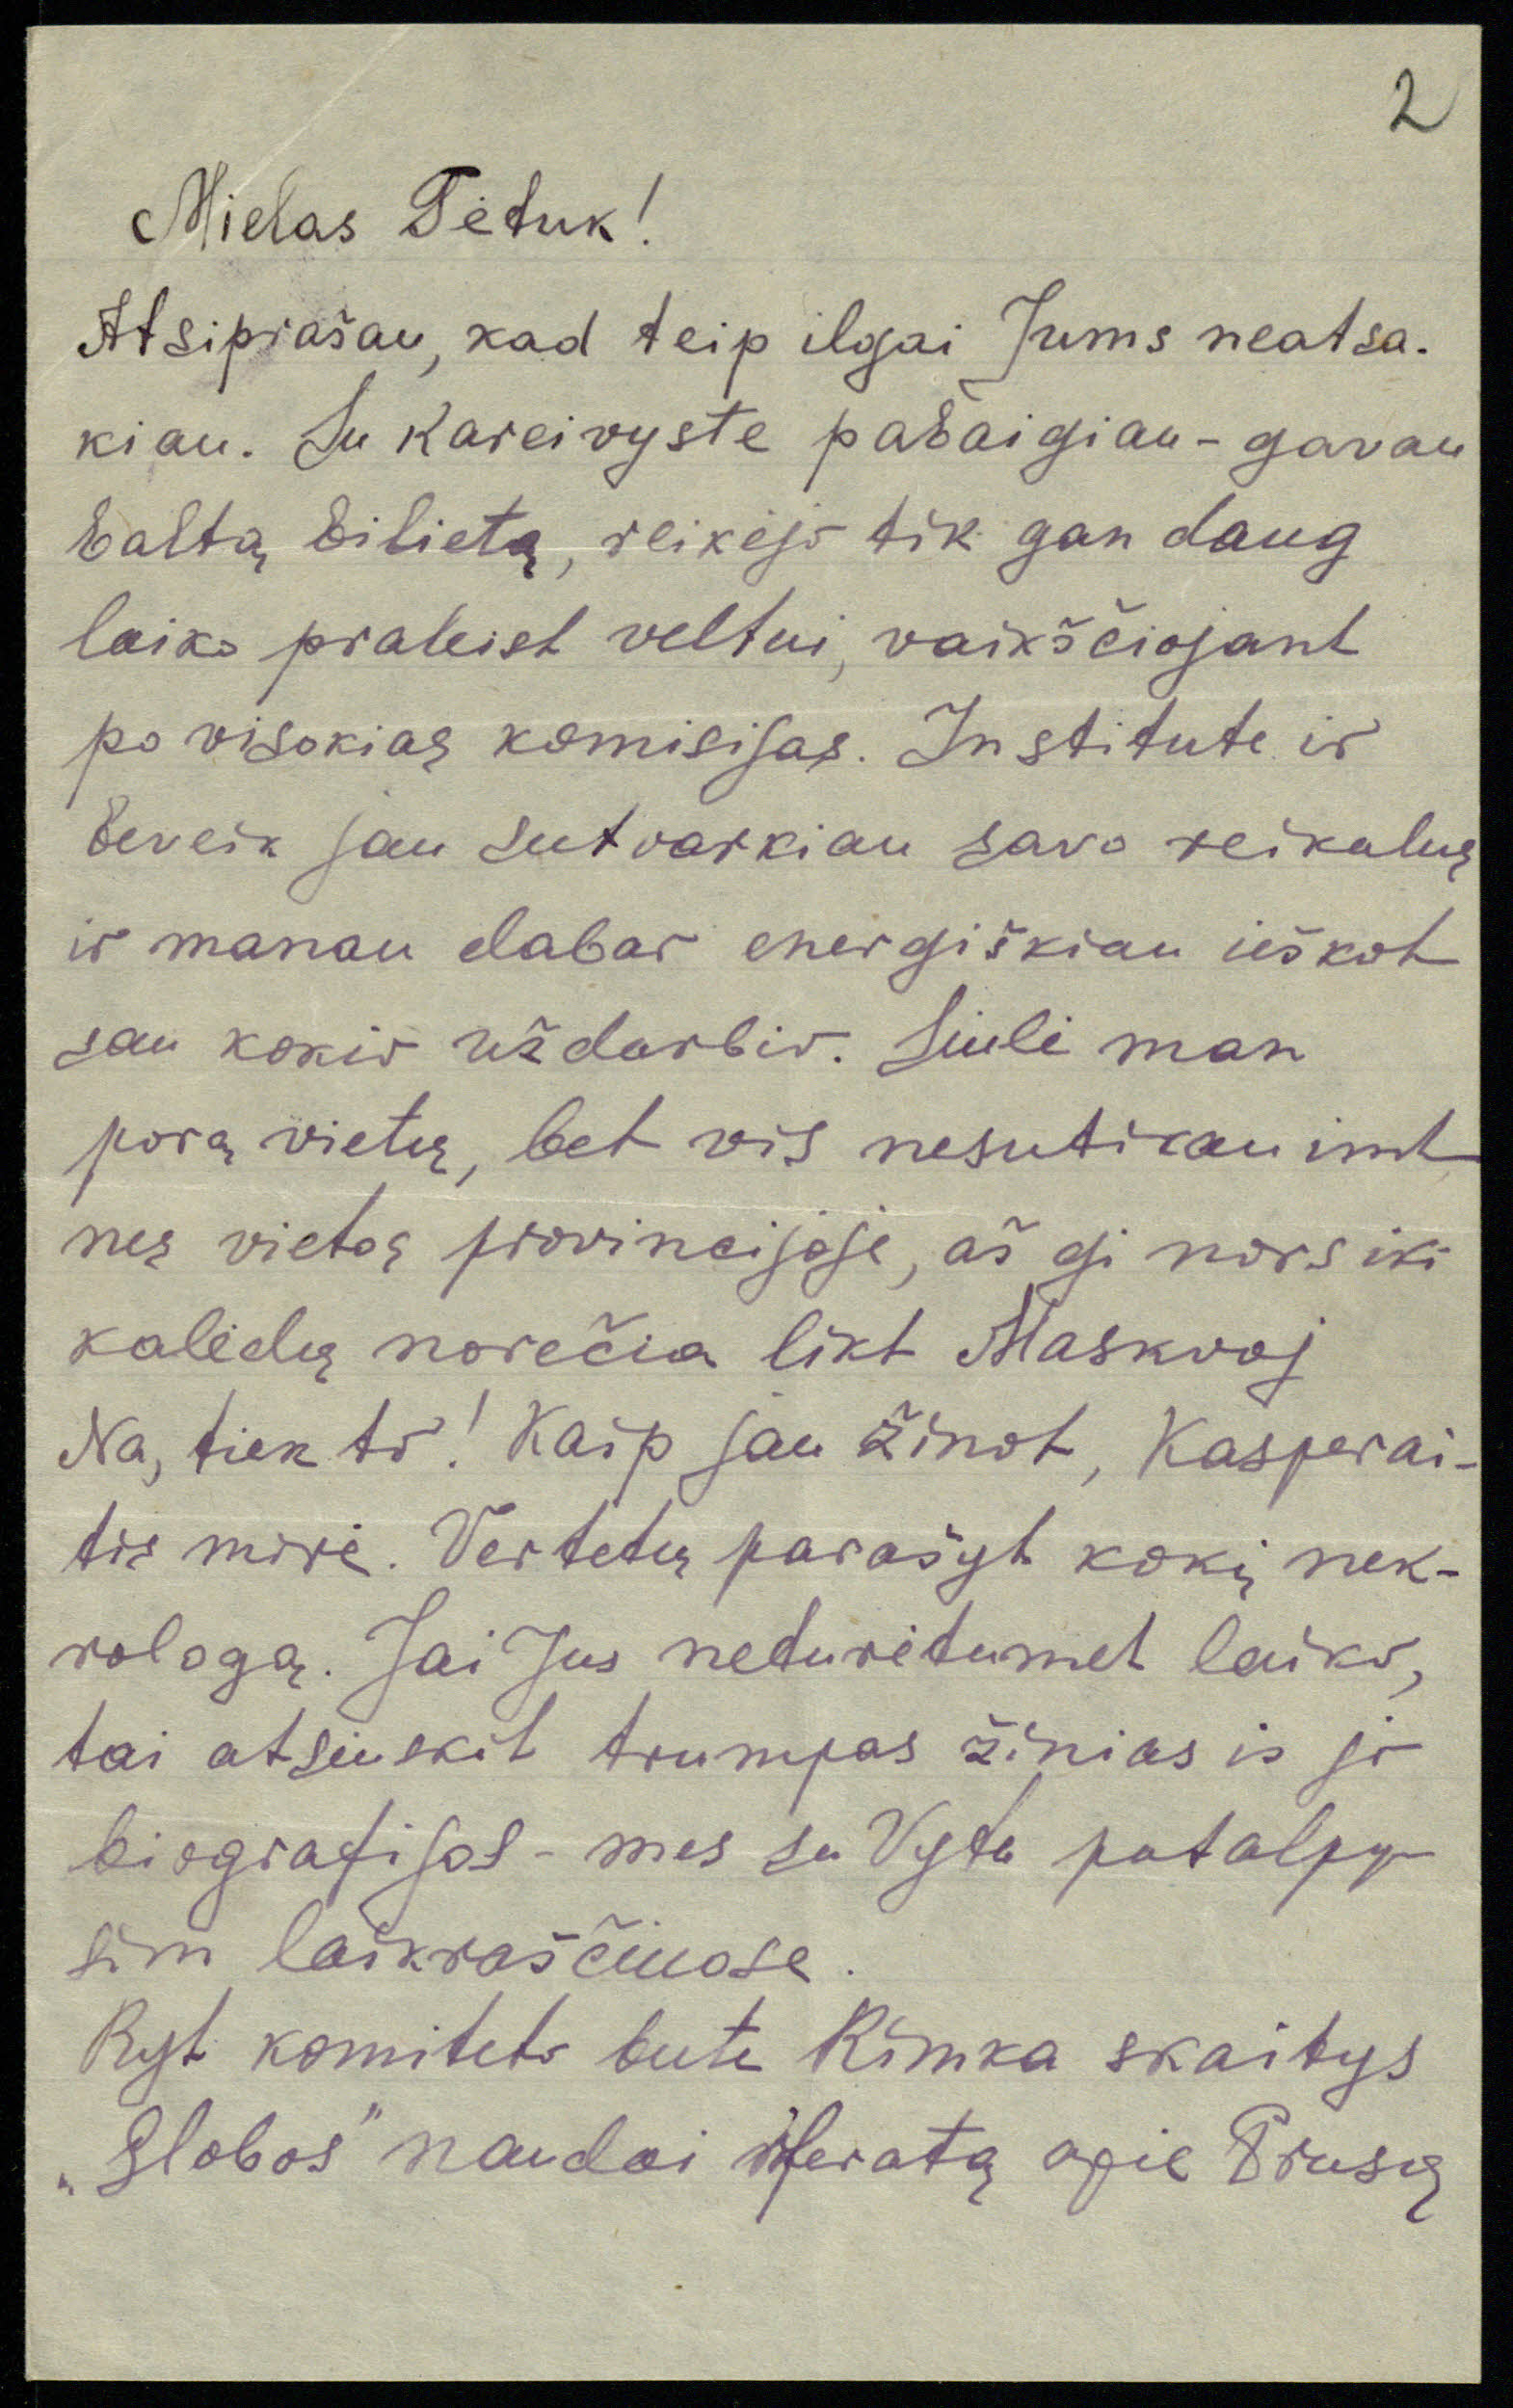 2
Mielas Tėtuk!
Atsiprašau, kad teip ilgai Jums neatsa-
kiau. Su kareivyste pabaigiau - gavau
baltą bilietą, reikėjo tik gan daug
laiko praleist veltui, vaikščiojant
po visokias komisijas. Institute ir
beveik jau sutvarkiau savo reikalus
ir manau dabar energiškiau ieškot
sau kokio uždarbio. Siuli man
porą vietų, bet vis nesutikau imt
nes vietos provincijoje, aš gi nors iki
kalėdų norečia likt Maskvoj
Na, tiek to! Kaip jau žinot, Kasperai-
tis mirė. Vertetų parašyt kokį nek-
rologą. Jai Jus neturėtumet laiko,
tai atsiuskit trumpas žinias is jo
biografijos - mes su Vytu patalpy-
sim laikraščiuose.
Ryt komiteto bute Rimka skaitys
„Globos" naudai referatą apie Prusų